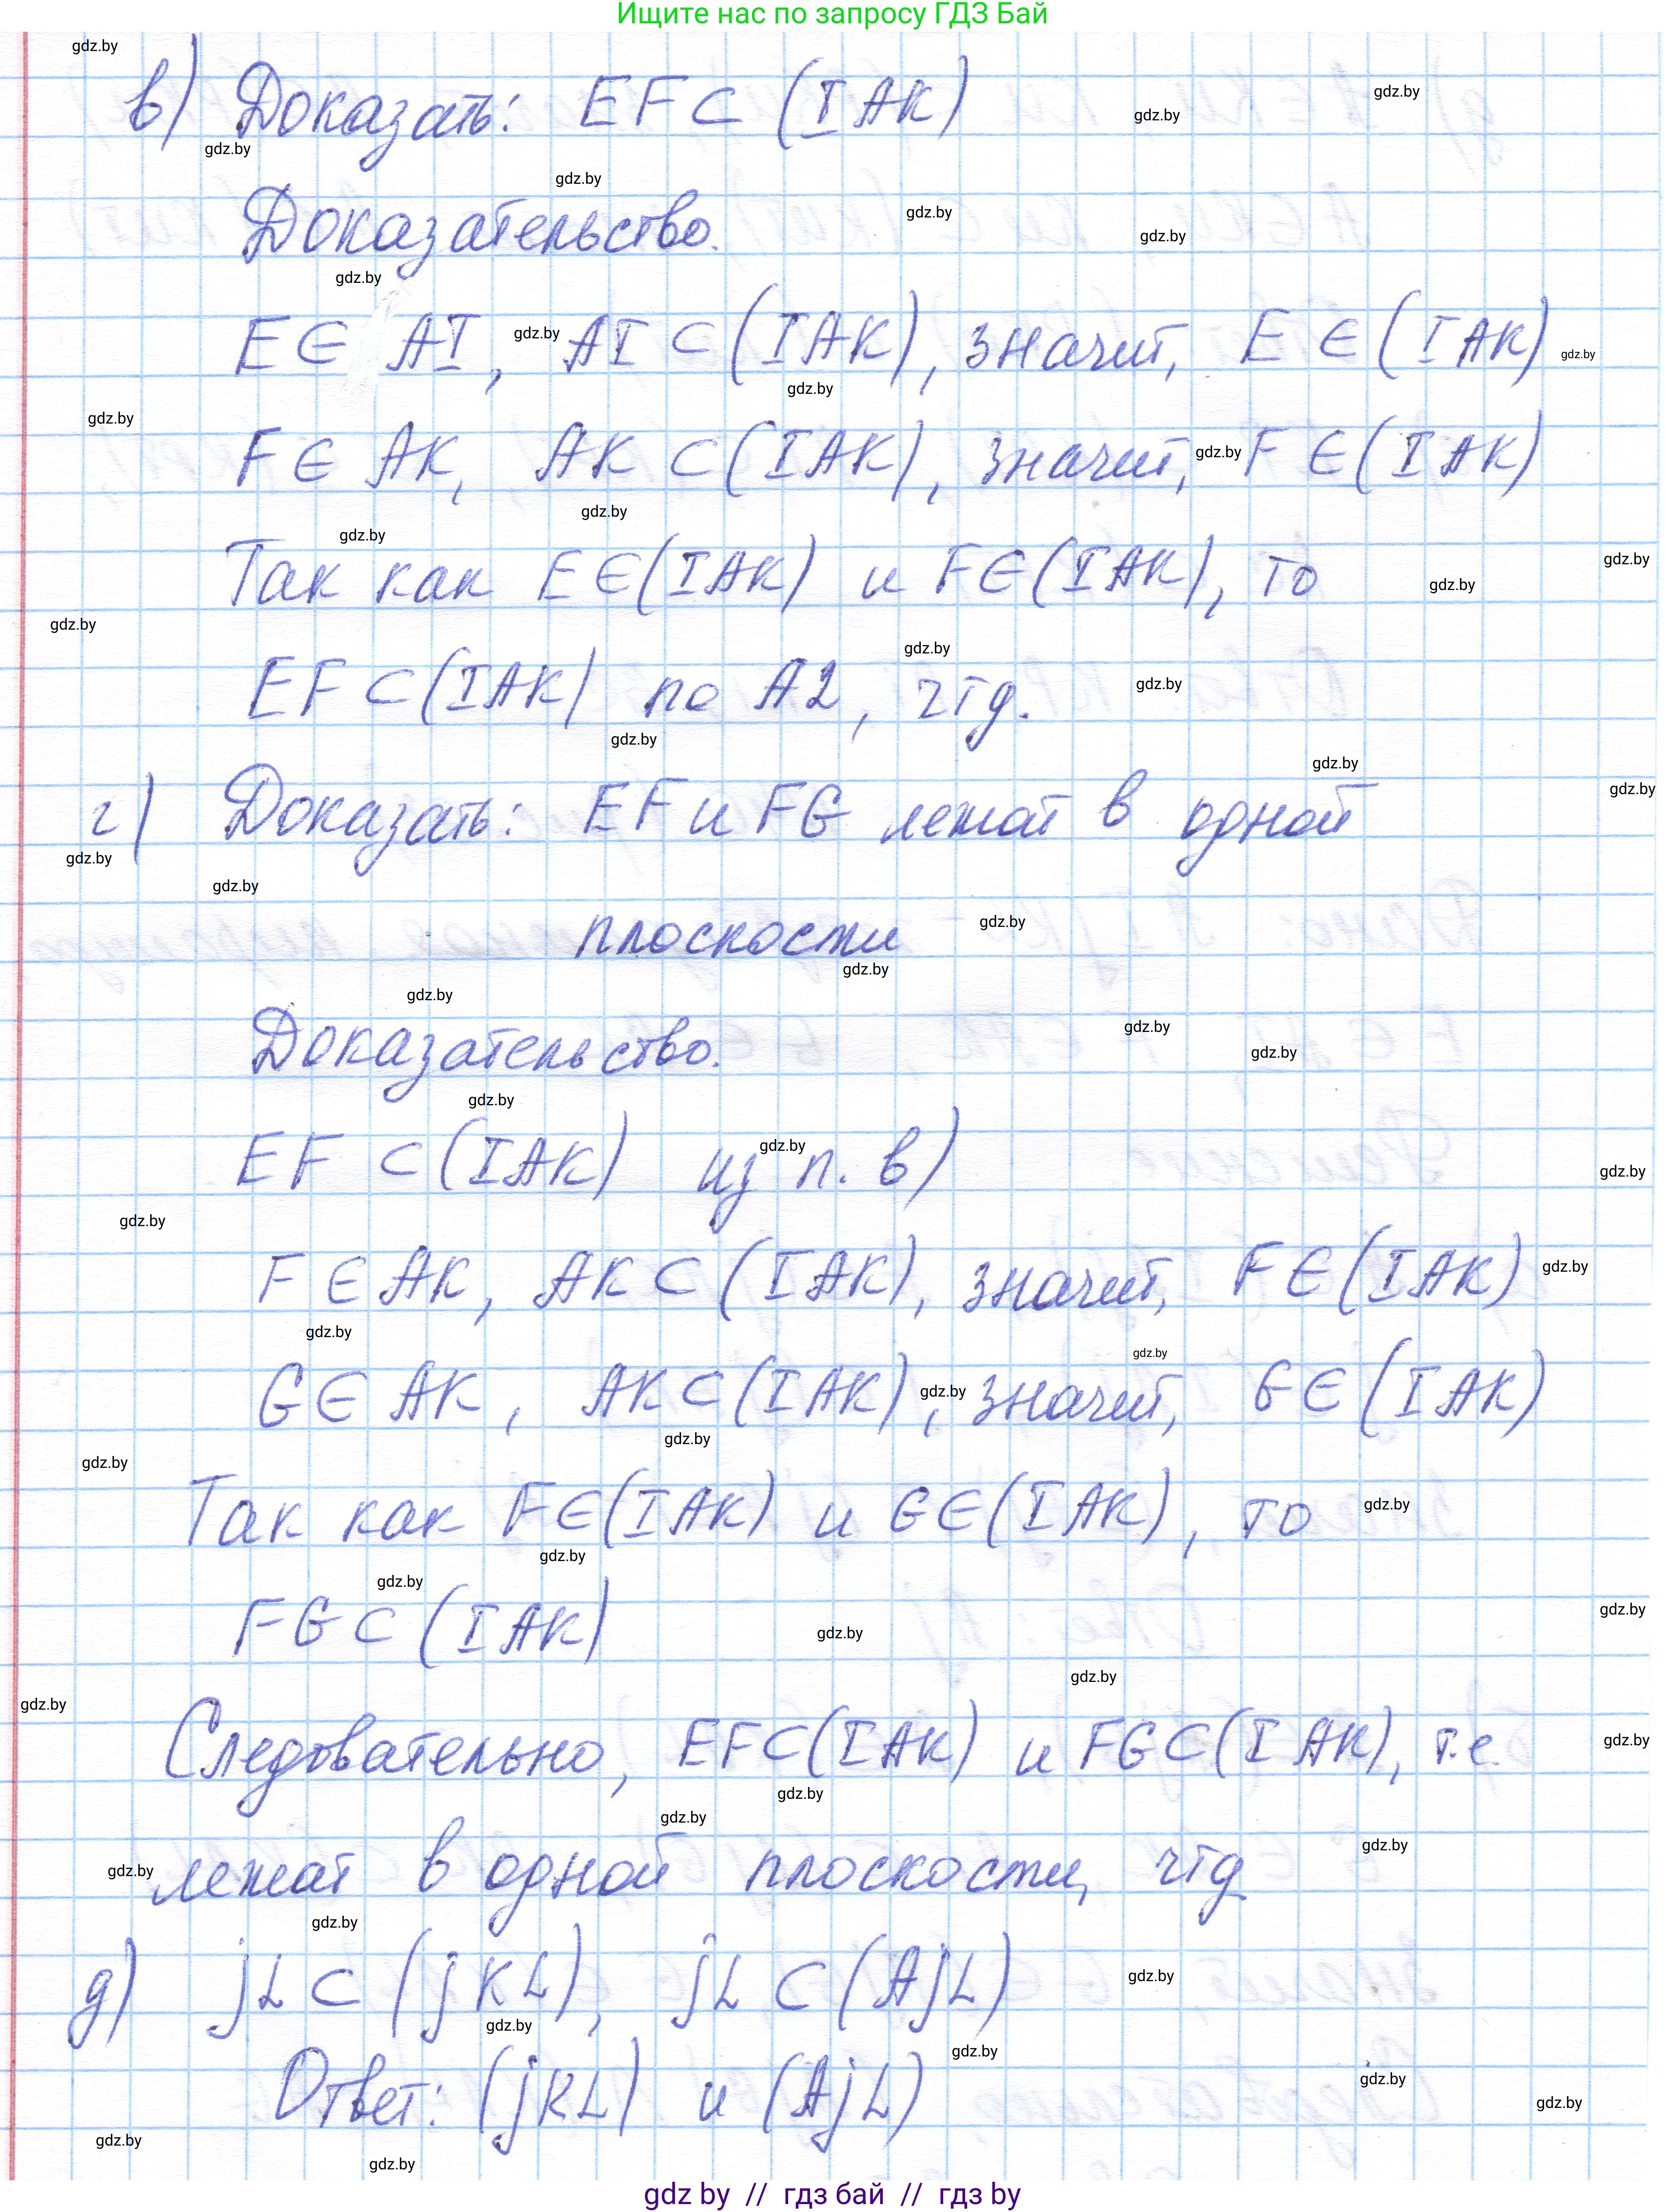 Ищите нас по запросу ГДЗ Бай
в) Доказать: EF ⊂ (IAK)
Доказательство.
E ∈ AI, AI ⊂ (IAK), значит, E ∈ (IAK)
F ∈ AK, AK ⊂ (IAK), значит, F ∈ (IAK)
Так как E ∈ (IAK) и F ∈ (IAK), то
EF ⊂ (IAK) по А2, чтд.
г) Доказать: EF и FG лежат в одной
плоскости
Доказательство.
EF ⊂ (IAK) из п. в)
F ∈ AK, AK ⊂ (IAK), значит, F ∈ (IAK)
G ∈ AK, AK ⊂ (IAK), значит, G ∈ (IAK)
Так как F ∈ (IAK) и G ∈ (IAK), то
FG ⊂ (IAK)
Следовательно, EF ⊂ (IAK) и FG ⊂ (IAK), т.е.
лежат в одной плоскости, чтд
д) jL ⊂ (jKL), jL ⊂ (AjL)
Ответ: (jKL) и (AjL)
gdz by // гдз бай // гдз by